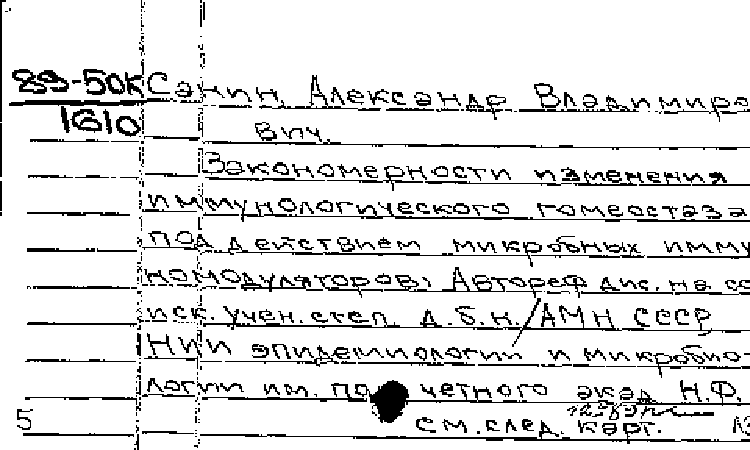 89-50К Санин, Александр Владимиро
1610 вич.
Закономерности изменения
иммунологического гомеостаза
под действием микробных имму
номодуляторов: Автореф. дис. на со
иск. учен. степ. д.б.н. / АМН СССР
НИИ эпидемиологии и микробио-
логии им. почетного акад. Н.Ф.
5 см. след. карт.